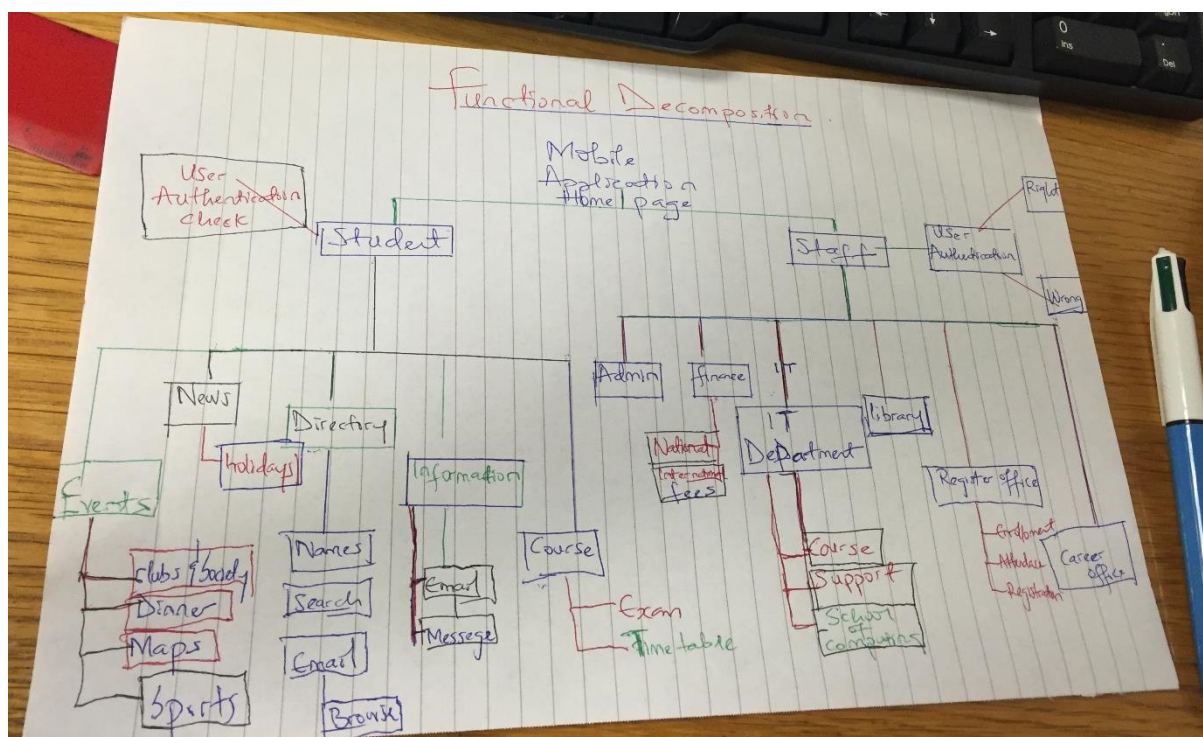 Functional Decomposition
Mobile
Application
Home page
User
Authentication
check
Student
Staff
User
Authentication
Right
Wrong
News
Holidays
Directory
Events
Clubs & Society
Dinner
Maps
Sports
Names
Search
Email
Browse
Information
Email
Messege
Course
Exam
Timetable
Admin
finance
National
fees
IT
IT
Department
Course
Support
School
of
computing
library
Register office
Enrollment
Registration
Career
office
O
Ins
.
Del